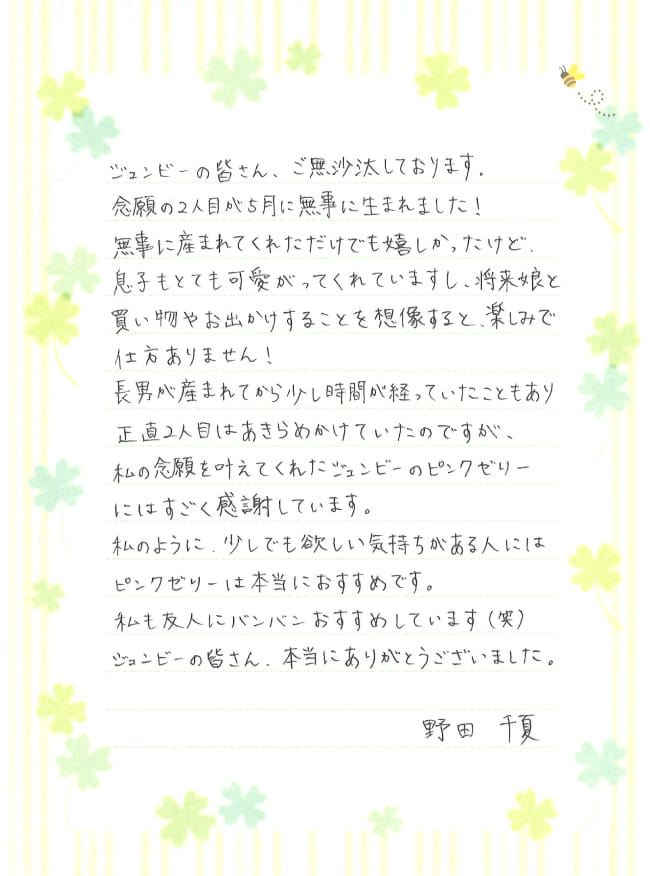 ジュンビーの皆さん、ご無沙汰しております。
念願の2人目が5月に無事に生まれました！
無事に産まれてくれただけでも嬉しかったけど、
息子もとても可愛がってくれていますし、将来娘と
買い物やお出かけすることを想像すると、楽しみで
仕方ありません！
長男が産まれてから少し時間が経っていたこともあり
正直2人目はあきらめかけていたのですが、
私の念願を叶えてくれたジュンビーのピンクゼリー
にはすごく感謝しています。
私のように、少しでも欲しい気持ちがある人には
ピンクゼリーは本当におすすめです。
私も友人にバンバンおすすめしています（笑）
ジュンビーの皆さん、本当にありがとうございました。
野田 千夏